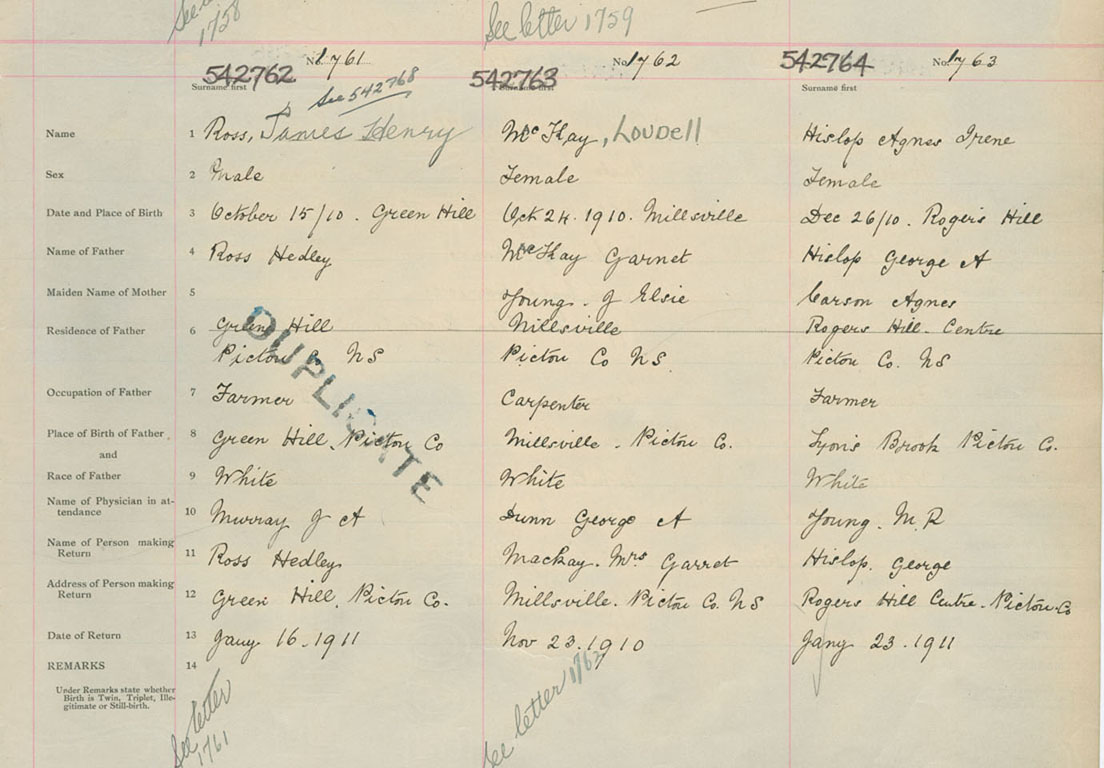 See letter 1759
1758
No. 1761 No. 1762 No. 1763
542762 542763 542764
Surname first Surname first Surname first
See 542768
Name 1 Ross, James Henry McKay, Loudell Hislop Agnes Irene
Sex 2 Male Female Female
Date and Place of Birth 3 October 15/10. Green Hill Oct 24. 1910. Millsville Dec 26/10. Rogers Hill
Name of Father 4 Ross Hedley McKay Garnet Hislop George A
Maiden Name of Mother 5 Young. J Elsie Carson Agnes
Residence of Father 6 Green Hill Millsville Rogers Hill Centre
Pictou Co NS Pictou Co NS Pictou Co. NS
DUPLICATE
Occupation of Father 7 Farmer Carpenter Farmer
Place of Birth of Father 8 Green Hill, Pictou Co Millsville - Pictou Co. Lyons Brook Pictou Co.
and
Race of Father 9 White White White
Name of Physician in at-
tendance 10 Murray J A Dunn George A Young. M. R
Name of Person making
Return 11 Ross Hedley Mackay. Mrs Garret Hislop. George
Address of Person making
Return 12 Green Hill, Pictou Co. Millsville. Pictou Co. NS Rogers Hill Centre. Pictou Co
Date of Return 13 Jany 16. 1911 Nov 23. 1910 Jany 23. 1911
REMARKS 14
Under Remarks state whether
Birth is Twin, Triplet, Ille-
gitimate or Still-birth.
See letter
1761
See letter 1762